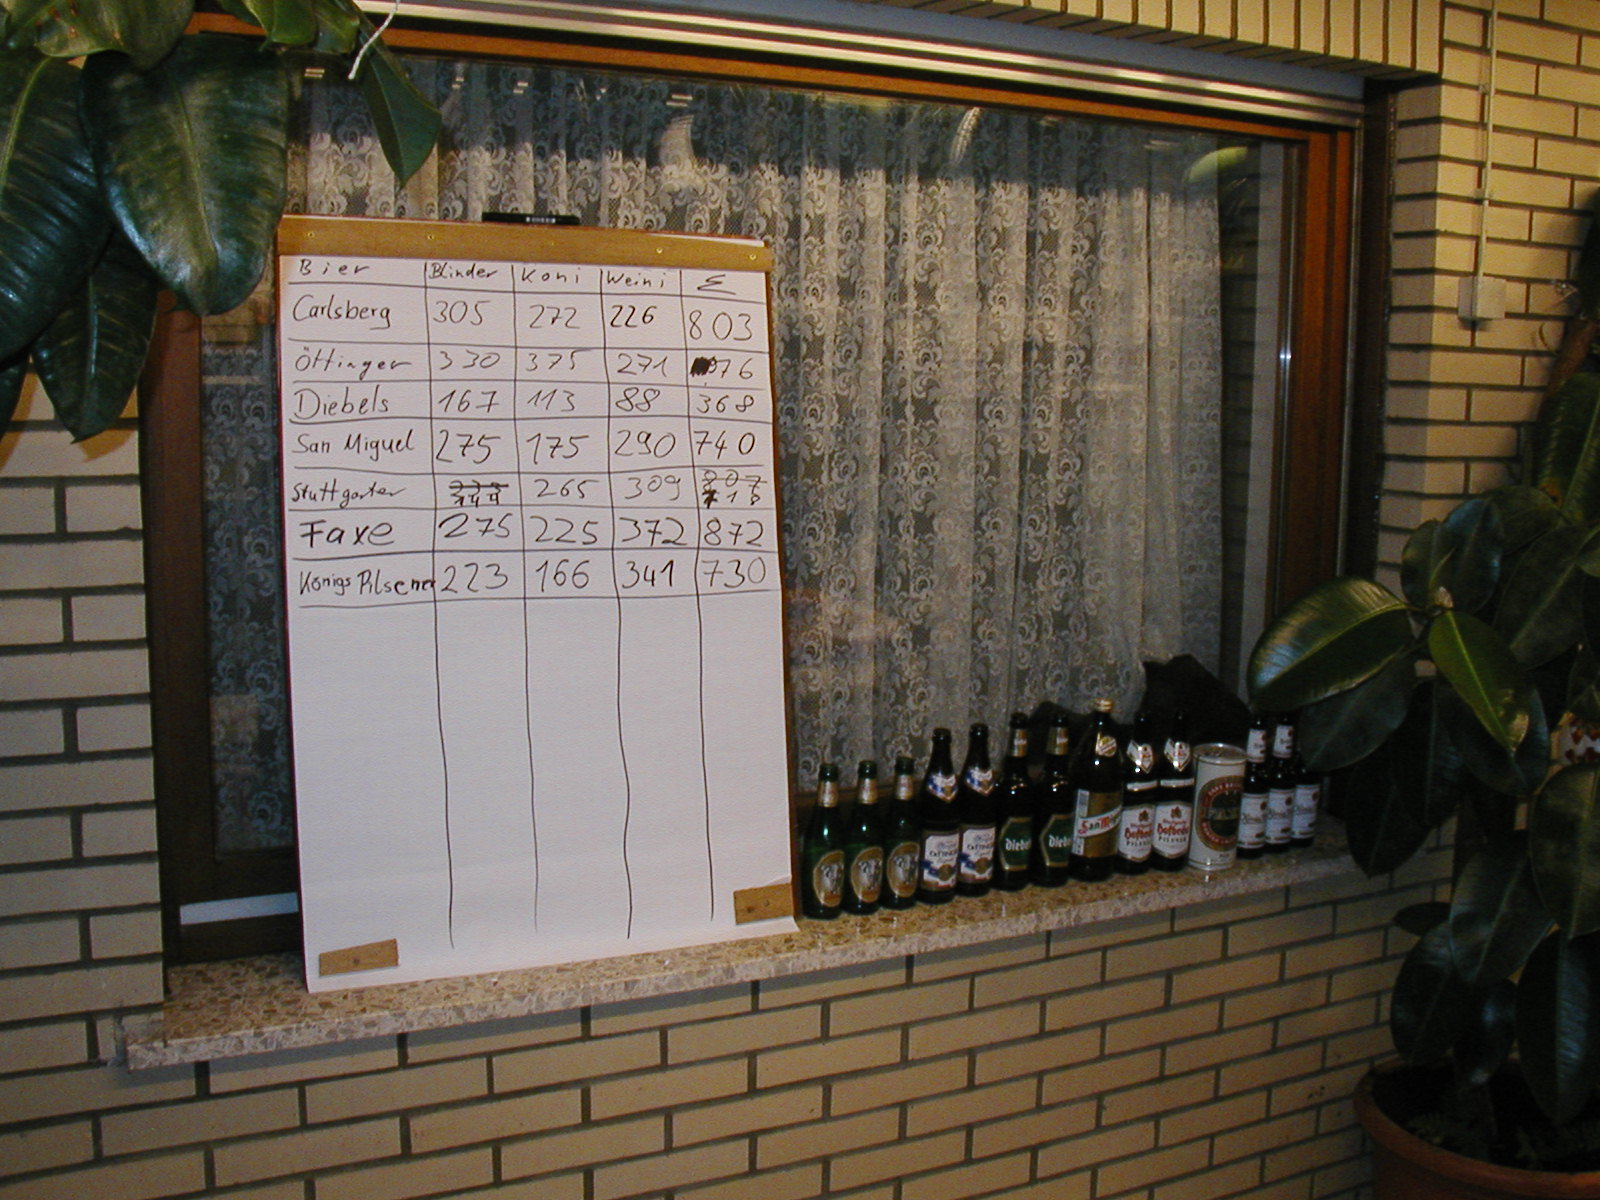 Bier Blinder Koni Weini Σ
Carlsberg 305 272 226 803
Öttinger 330 375 271 976
Diebels 167 113 88 368
San Miguel 275 175 290 740
Stuttgarter 144 265 309 718
Faxe 275 225 372 872
Königs Pilsener 223 166 341 730
Diebels
San Miguel
Hofbräu
PILSNER
Hofbräu
PILSNER